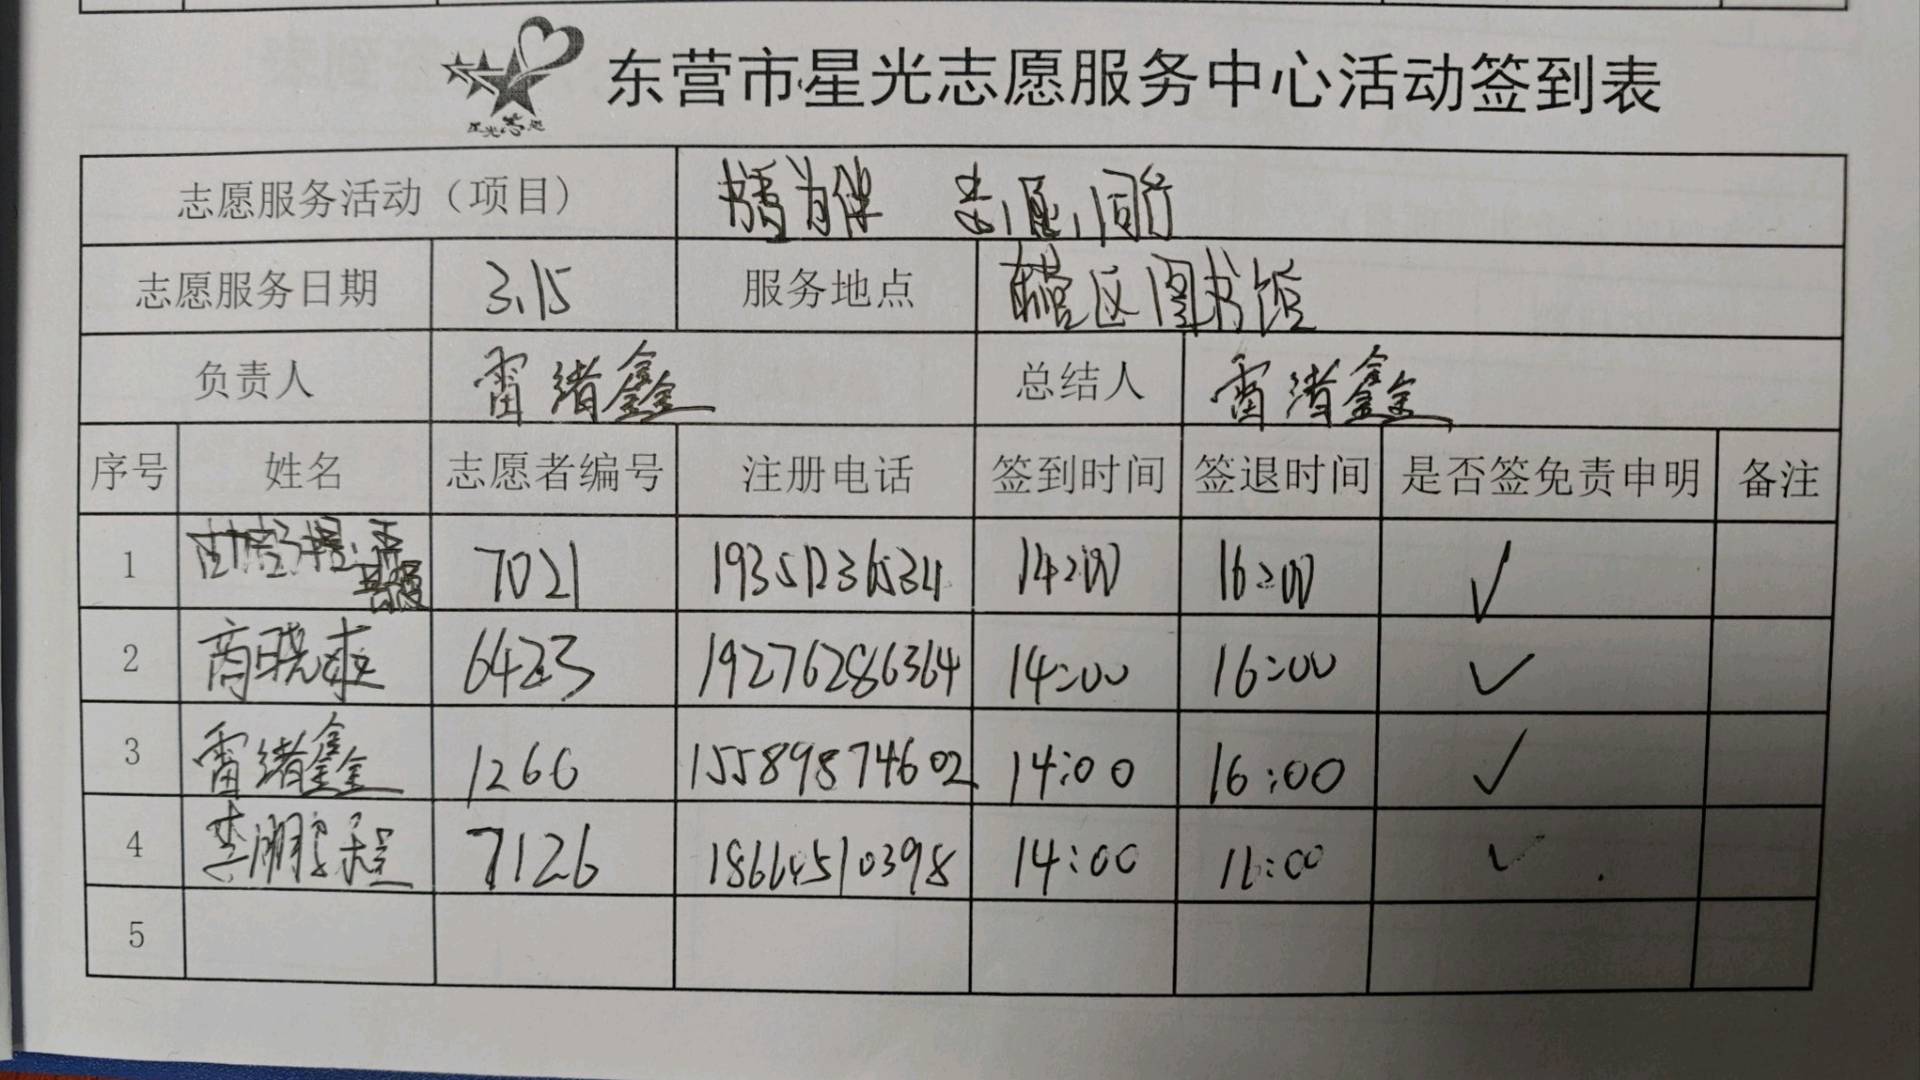 东营市星光志愿服务中心活动签到表
志愿服务活动（项目） 书香为伴 志愿同行
志愿服务日期 3.15 服务地点 东营区图书馆
负责人 雷绪鑫 总结人 雷绪鑫
序号 姓名 志愿者编号 注册电话 签到时间 签退时间 是否签免责申明 备注
1 7021 14:00 16:00 ✓
2 商晓 6423 19276286364 14:00 16:00 ✓
3 雷绪鑫 1266 15589874602 14:00 16:00 ✓
4 李鹏程 7126 14:00 16:00 ✓
5